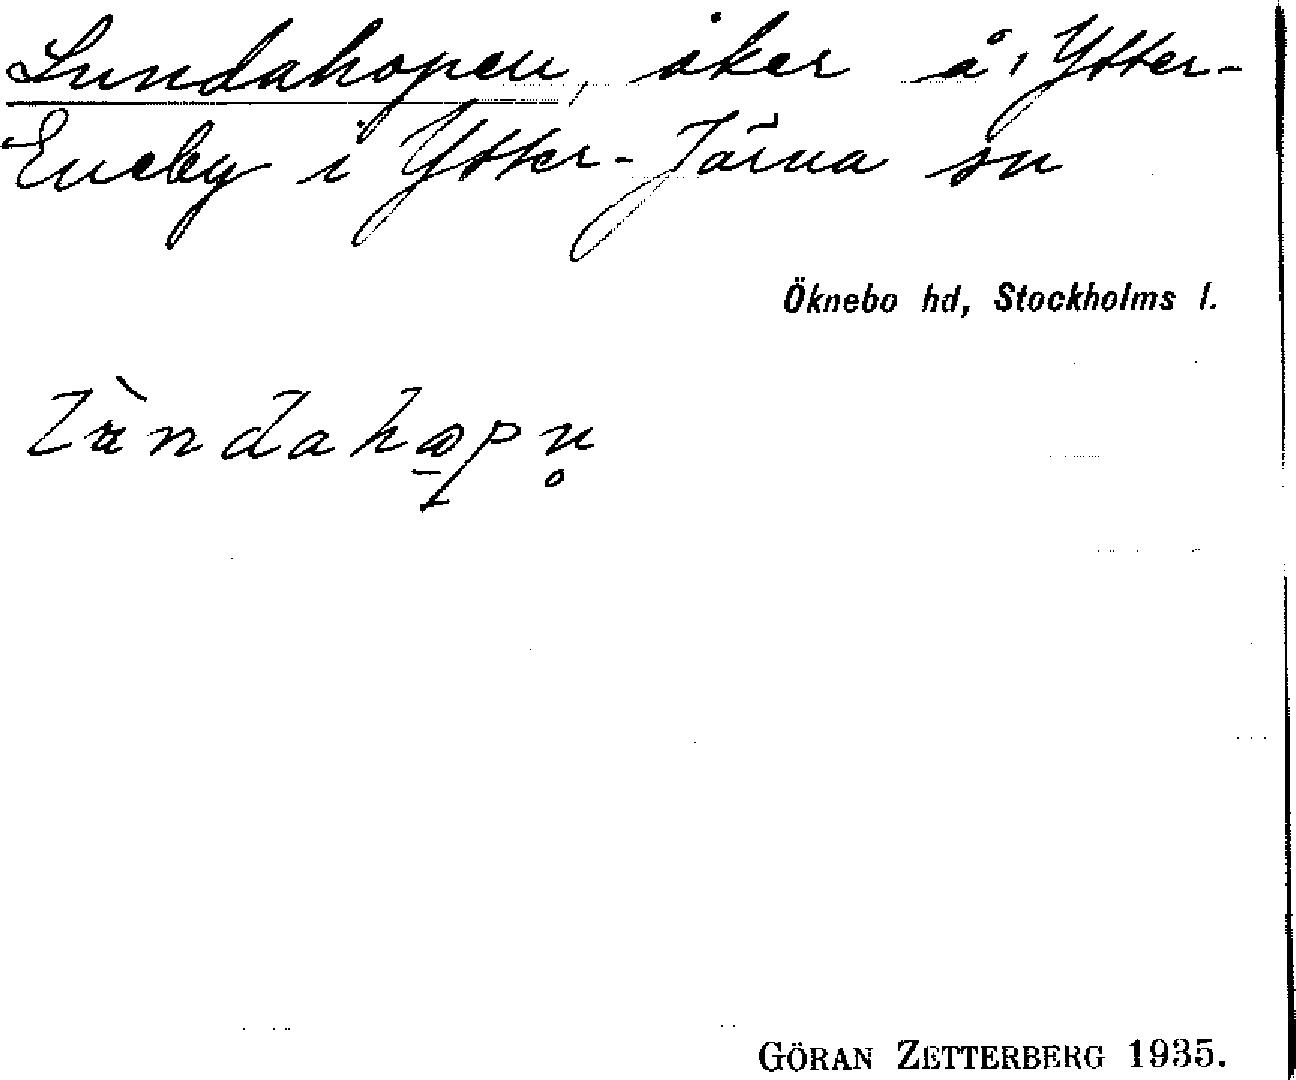 Lundahopen, åker å, Ytter-
Eneby i Ytter-Järna sn
Öknebo hd, Stockholms l.
GÖRAN ZETTERBERG 1935.